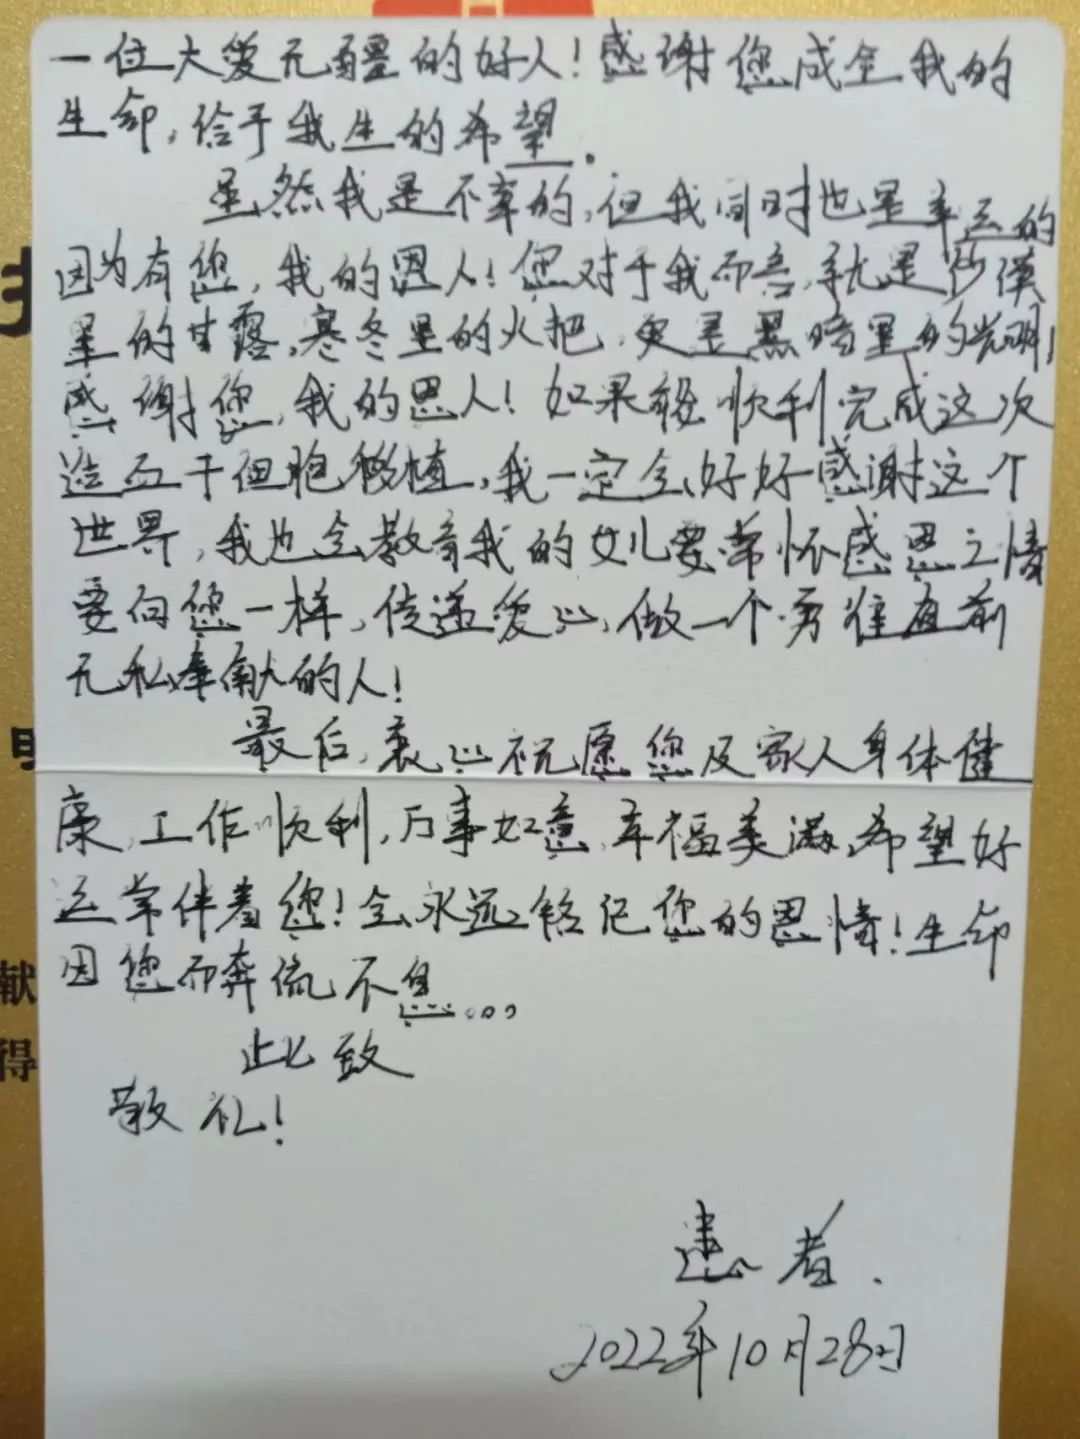 一位大爱无疆的好人！感谢您成全我的
生命，给予我生的希望。
虽然我是不幸的，但我同时也是幸运的
因为有您，我的恩人！您对于我而言，就是沙漠
里的甘露，寒冬里的火把，更是黑暗里的光明！
感谢您，我的恩人！如果能顺利完成这次
造血干细胞移植，我一定会好好感谢这个
世界，我也会教育我的女儿要常怀感恩之情
要向您一样，传递爱心，做一个勇往直前
无私奉献的人！
最后，衷心祝愿您及家人身体健
康，工作顺利，万事如意，幸福美满，希望好
运常伴着您！会永远铭记您的恩情！生命
因您而奔流不息...
此致
敬礼！
患者.
2022年10月28日
献
得